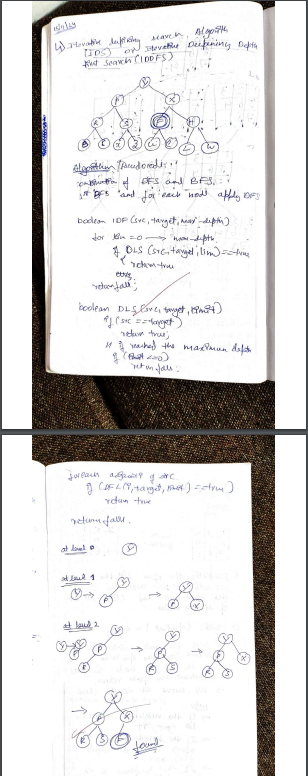 4) Iterative deepening search Algorithm
(IDS) or Iterative Deepening Depth
first search (IDDFS)
Y
P X
R S F H
B C Z L W
Algorithm Pseudocode:
combination of DFS and BFS.
1st BFS and for each node apply DFS
boolean IDF (src, target, max-depth)
for lim = 0 → max-depth
if DLS (src, target, lim) == true
return true
return false;
boolean DLS (src, target, limit)
if (src == target)
return true;
// if reached the maximum depth
if (limit <= 0)
return false;
foreach adjacent i of src
if (DFL(i, target, limit) == true)
return true
return false.
at level 0 Y
at level 1
Y → Y P → Y P X
at level 2
Y → Y P R → Y P R S → Y P X R S
→ Y P X R S F
found